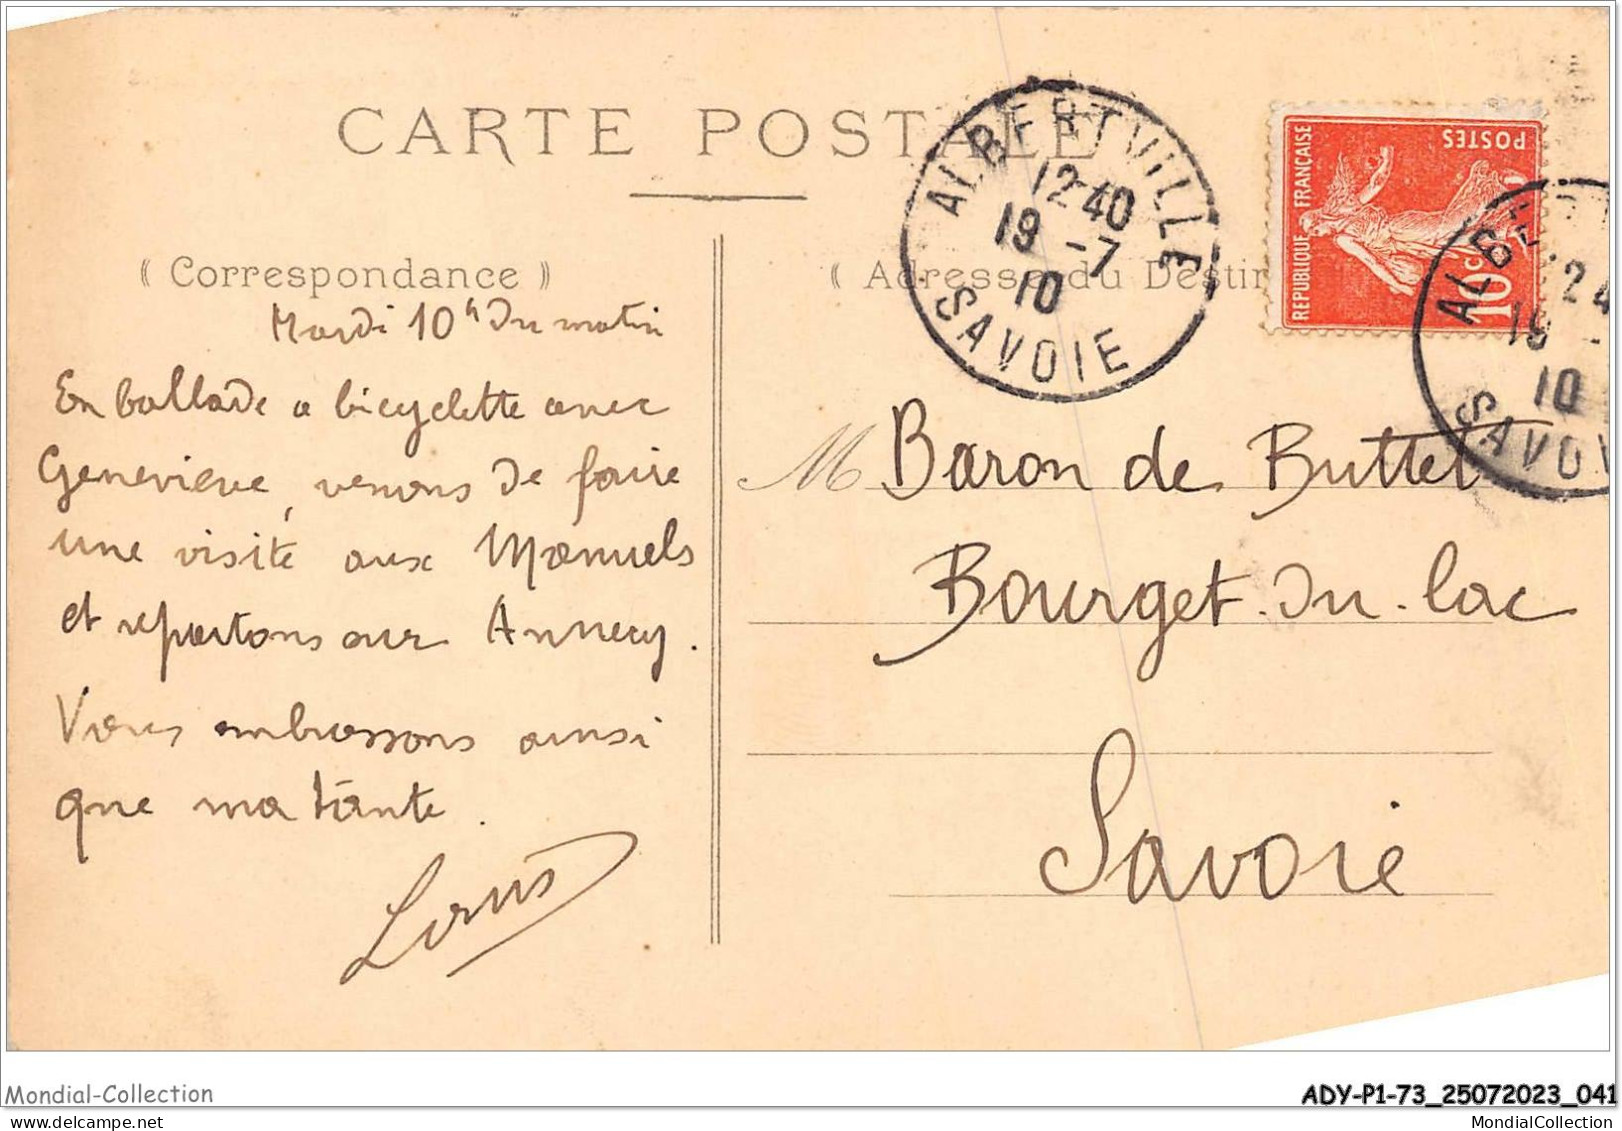 CARTE POSTALE
( Correspondance )
( Adresse du Destin
Mardi 10h du matin
En ballade a bicyclette avec
Geneviève, venons de faire
une visite aux Manuels
et repartons sur Annecy.
Vous embrassons ainsi
que ma tante.
Louis
ALBERTVILLE
12-40
19 -7
10
SAVOIE
REPUBLIQUE FRANÇAISE
POSTES
10c
ALBERT
24
19 -
10
SAVOI
M Baron de Buttet
Bourget-du-lac
Savoie
Mondial-Collection
ADY-P1-73_25072023_041
MondialCollection
MondialCollection